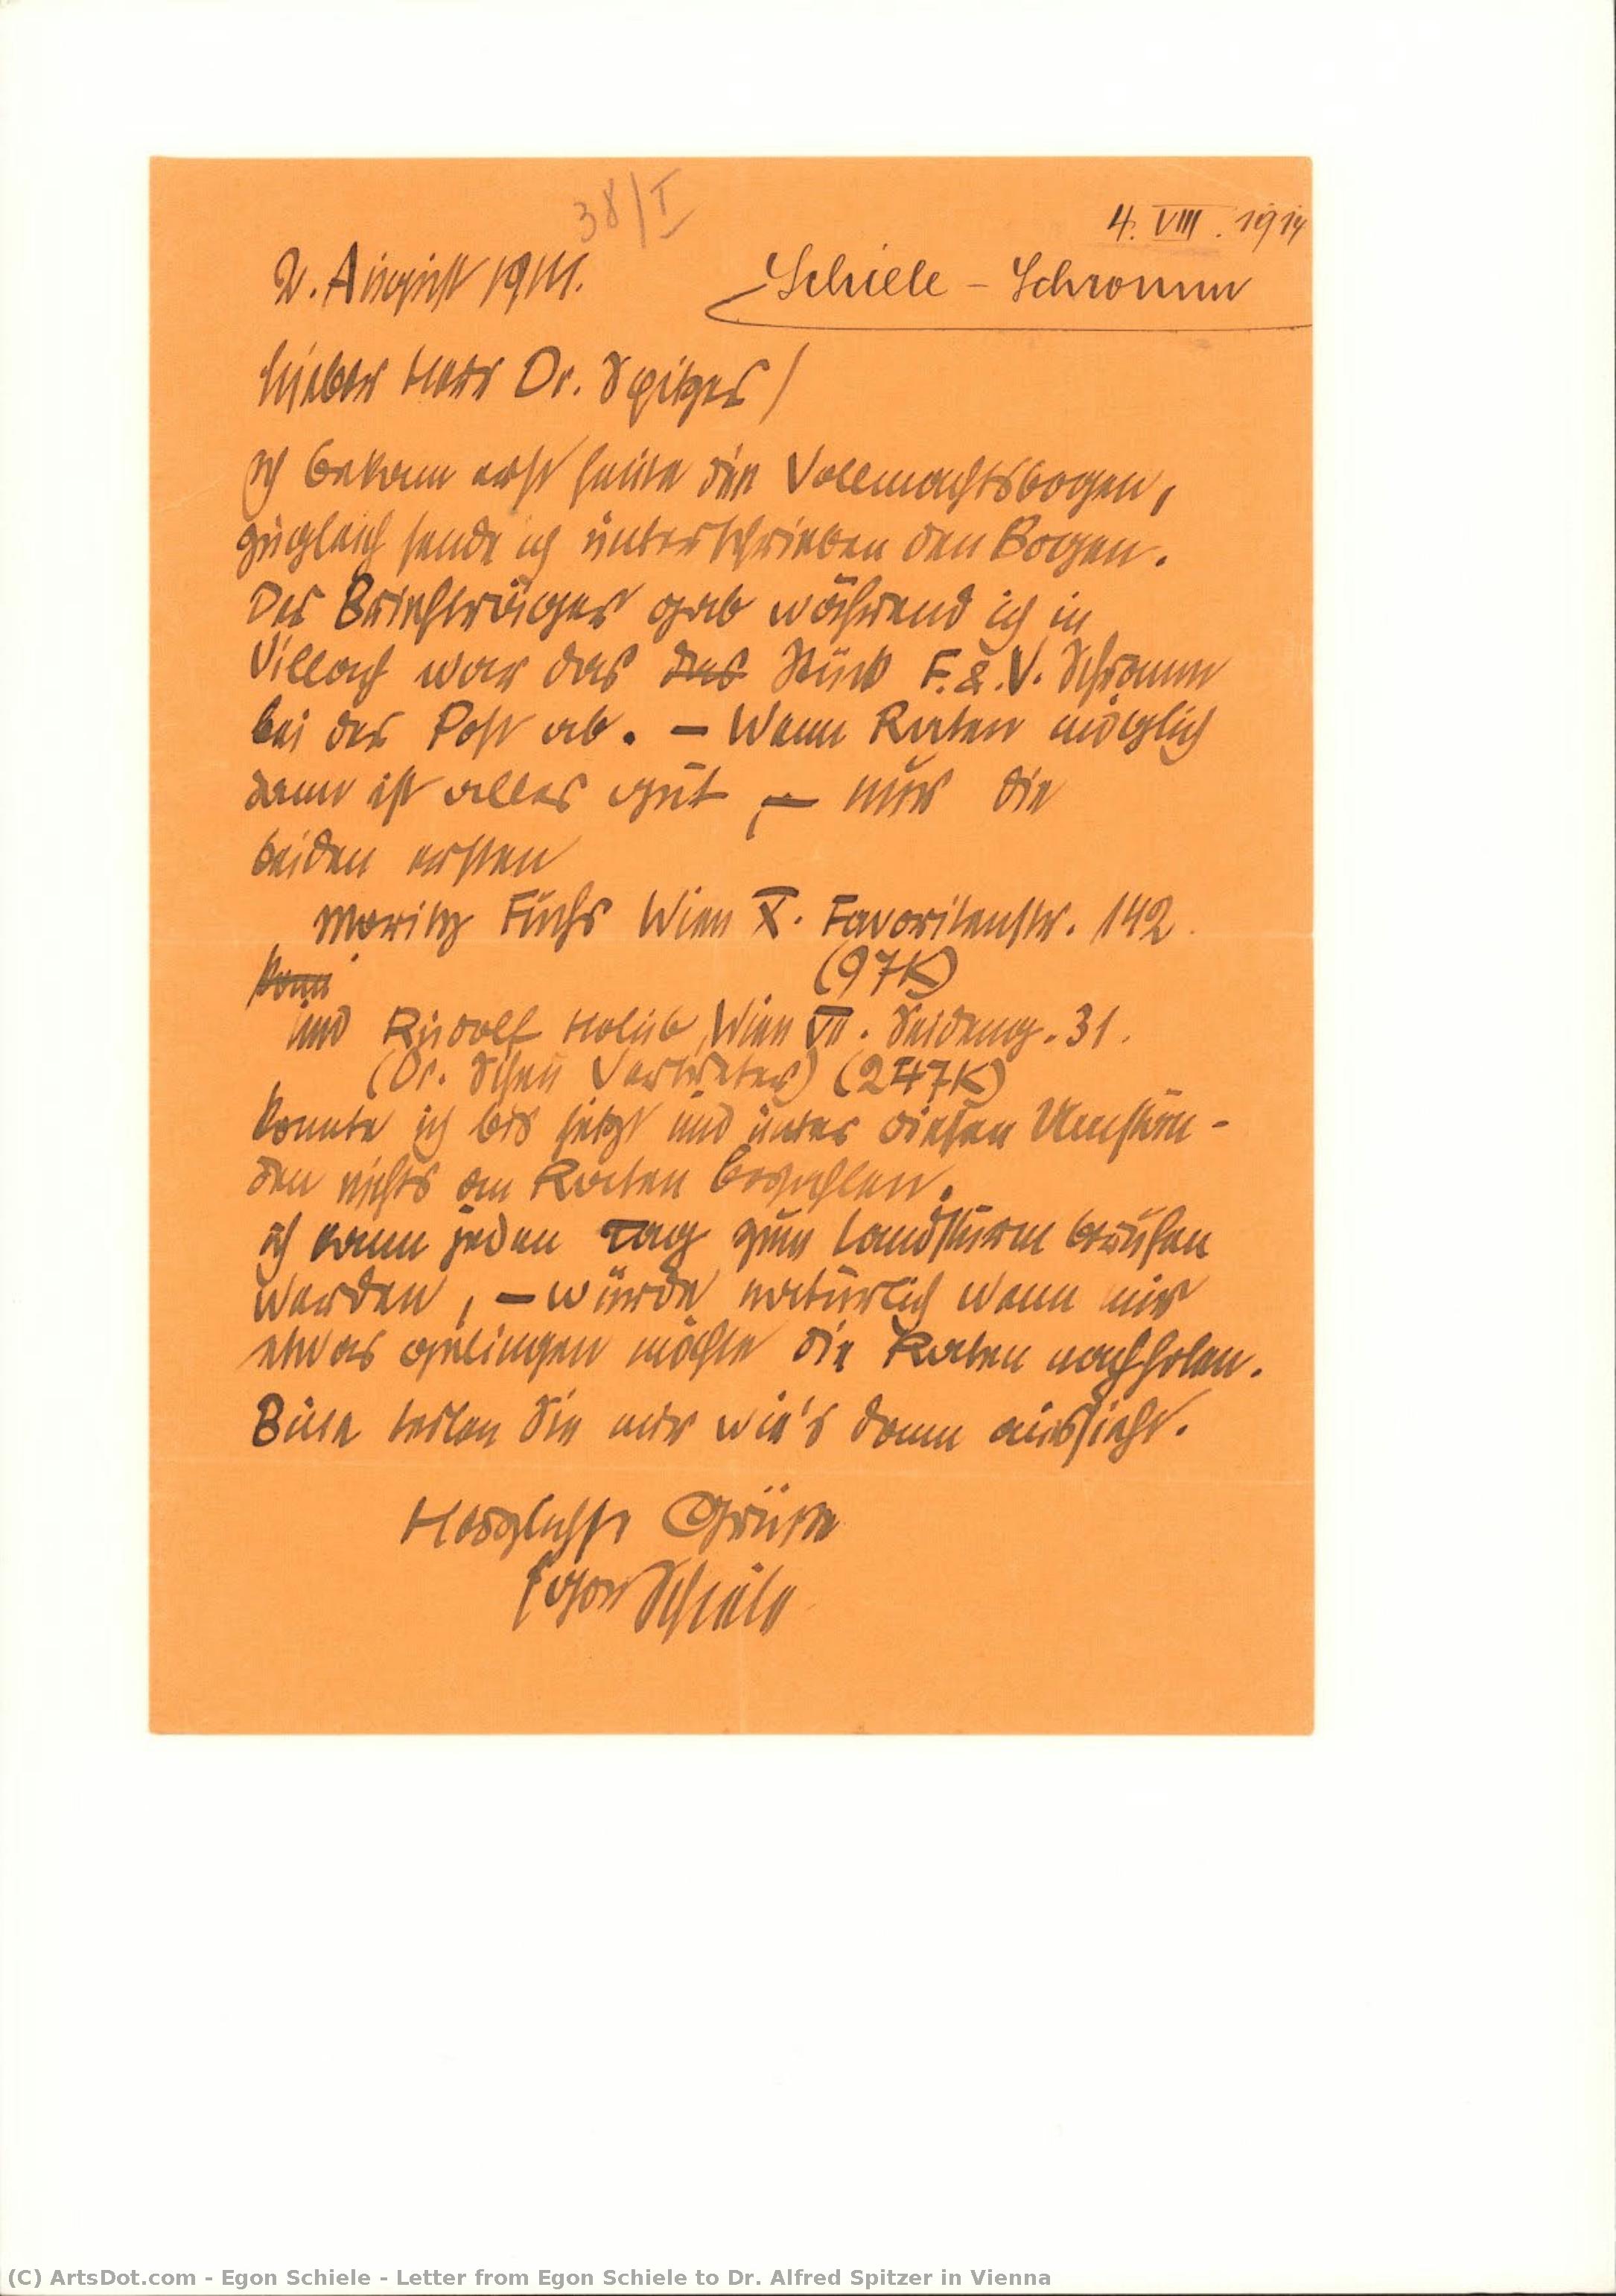 38/I
4. VIII. 1914
2. August 1914.
Schiele – Schramm
Lieber Herr Dr. Spitzer /
ich bekam erst heute den Vollmachtsbogen,
zugleich sende ich unterschrieben den Bogen.
Der Briefträger gab während ich in
Villach war das das Stück F. & V. Schramm
bei der Post ab. – Wenn Raten möglich
dann ist alles gut, – nur die
beiden ersten
Moritz Fuchs Wien X. Favoritenstr. 142.
(97K)
konn
und Rudolf Holub, Wien VII. Seideng. 31.
(Dr. Scheu Vertreter) (247K)
konnte ich bis jetzt und unter diesen Umstän-
den nichts an Raten bezahlen.
ich kann jeden Tag zum Landsturm berufen
werden, – würde natürlich wenn mir
etwas gelingen möchte die Raten nachholen.
Bitte teilen Sie mir wie's dann aussieht.
Herzlichste Grüße
Egon Schiele
(C) ArtsDot.com - Egon Schiele - Letter from Egon Schiele to Dr. Alfred Spitzer in Vienna